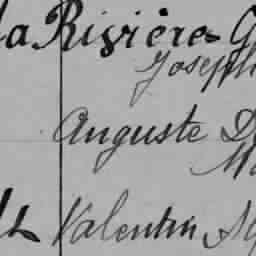 la Rivière G
Joseph
Auguste D
Ma
Valentin